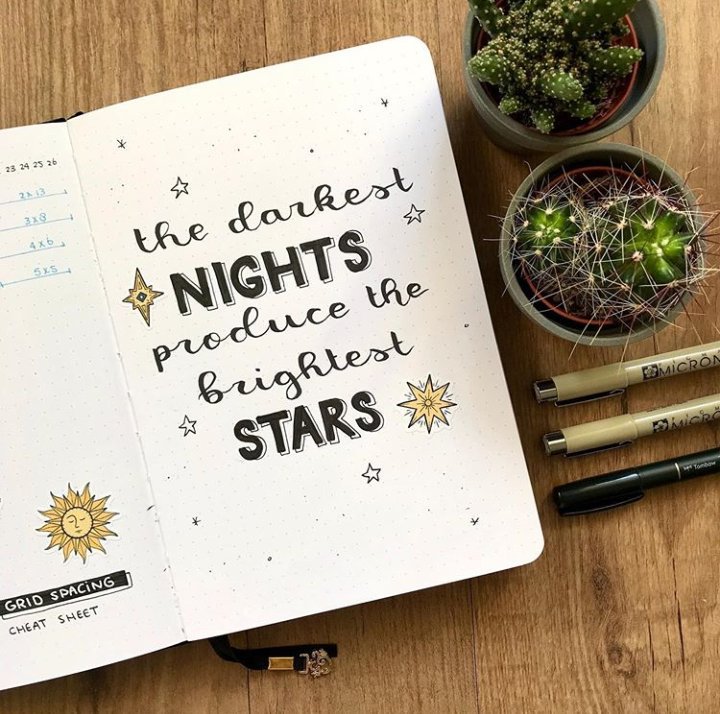 23 24 25 26
2x13
3x8
4x6
5x5
GRID SPACING
CHEAT SHEET
the darkest
NIGHTS
produce the
brightest
STARS
MICRON
MICRON
Tombow